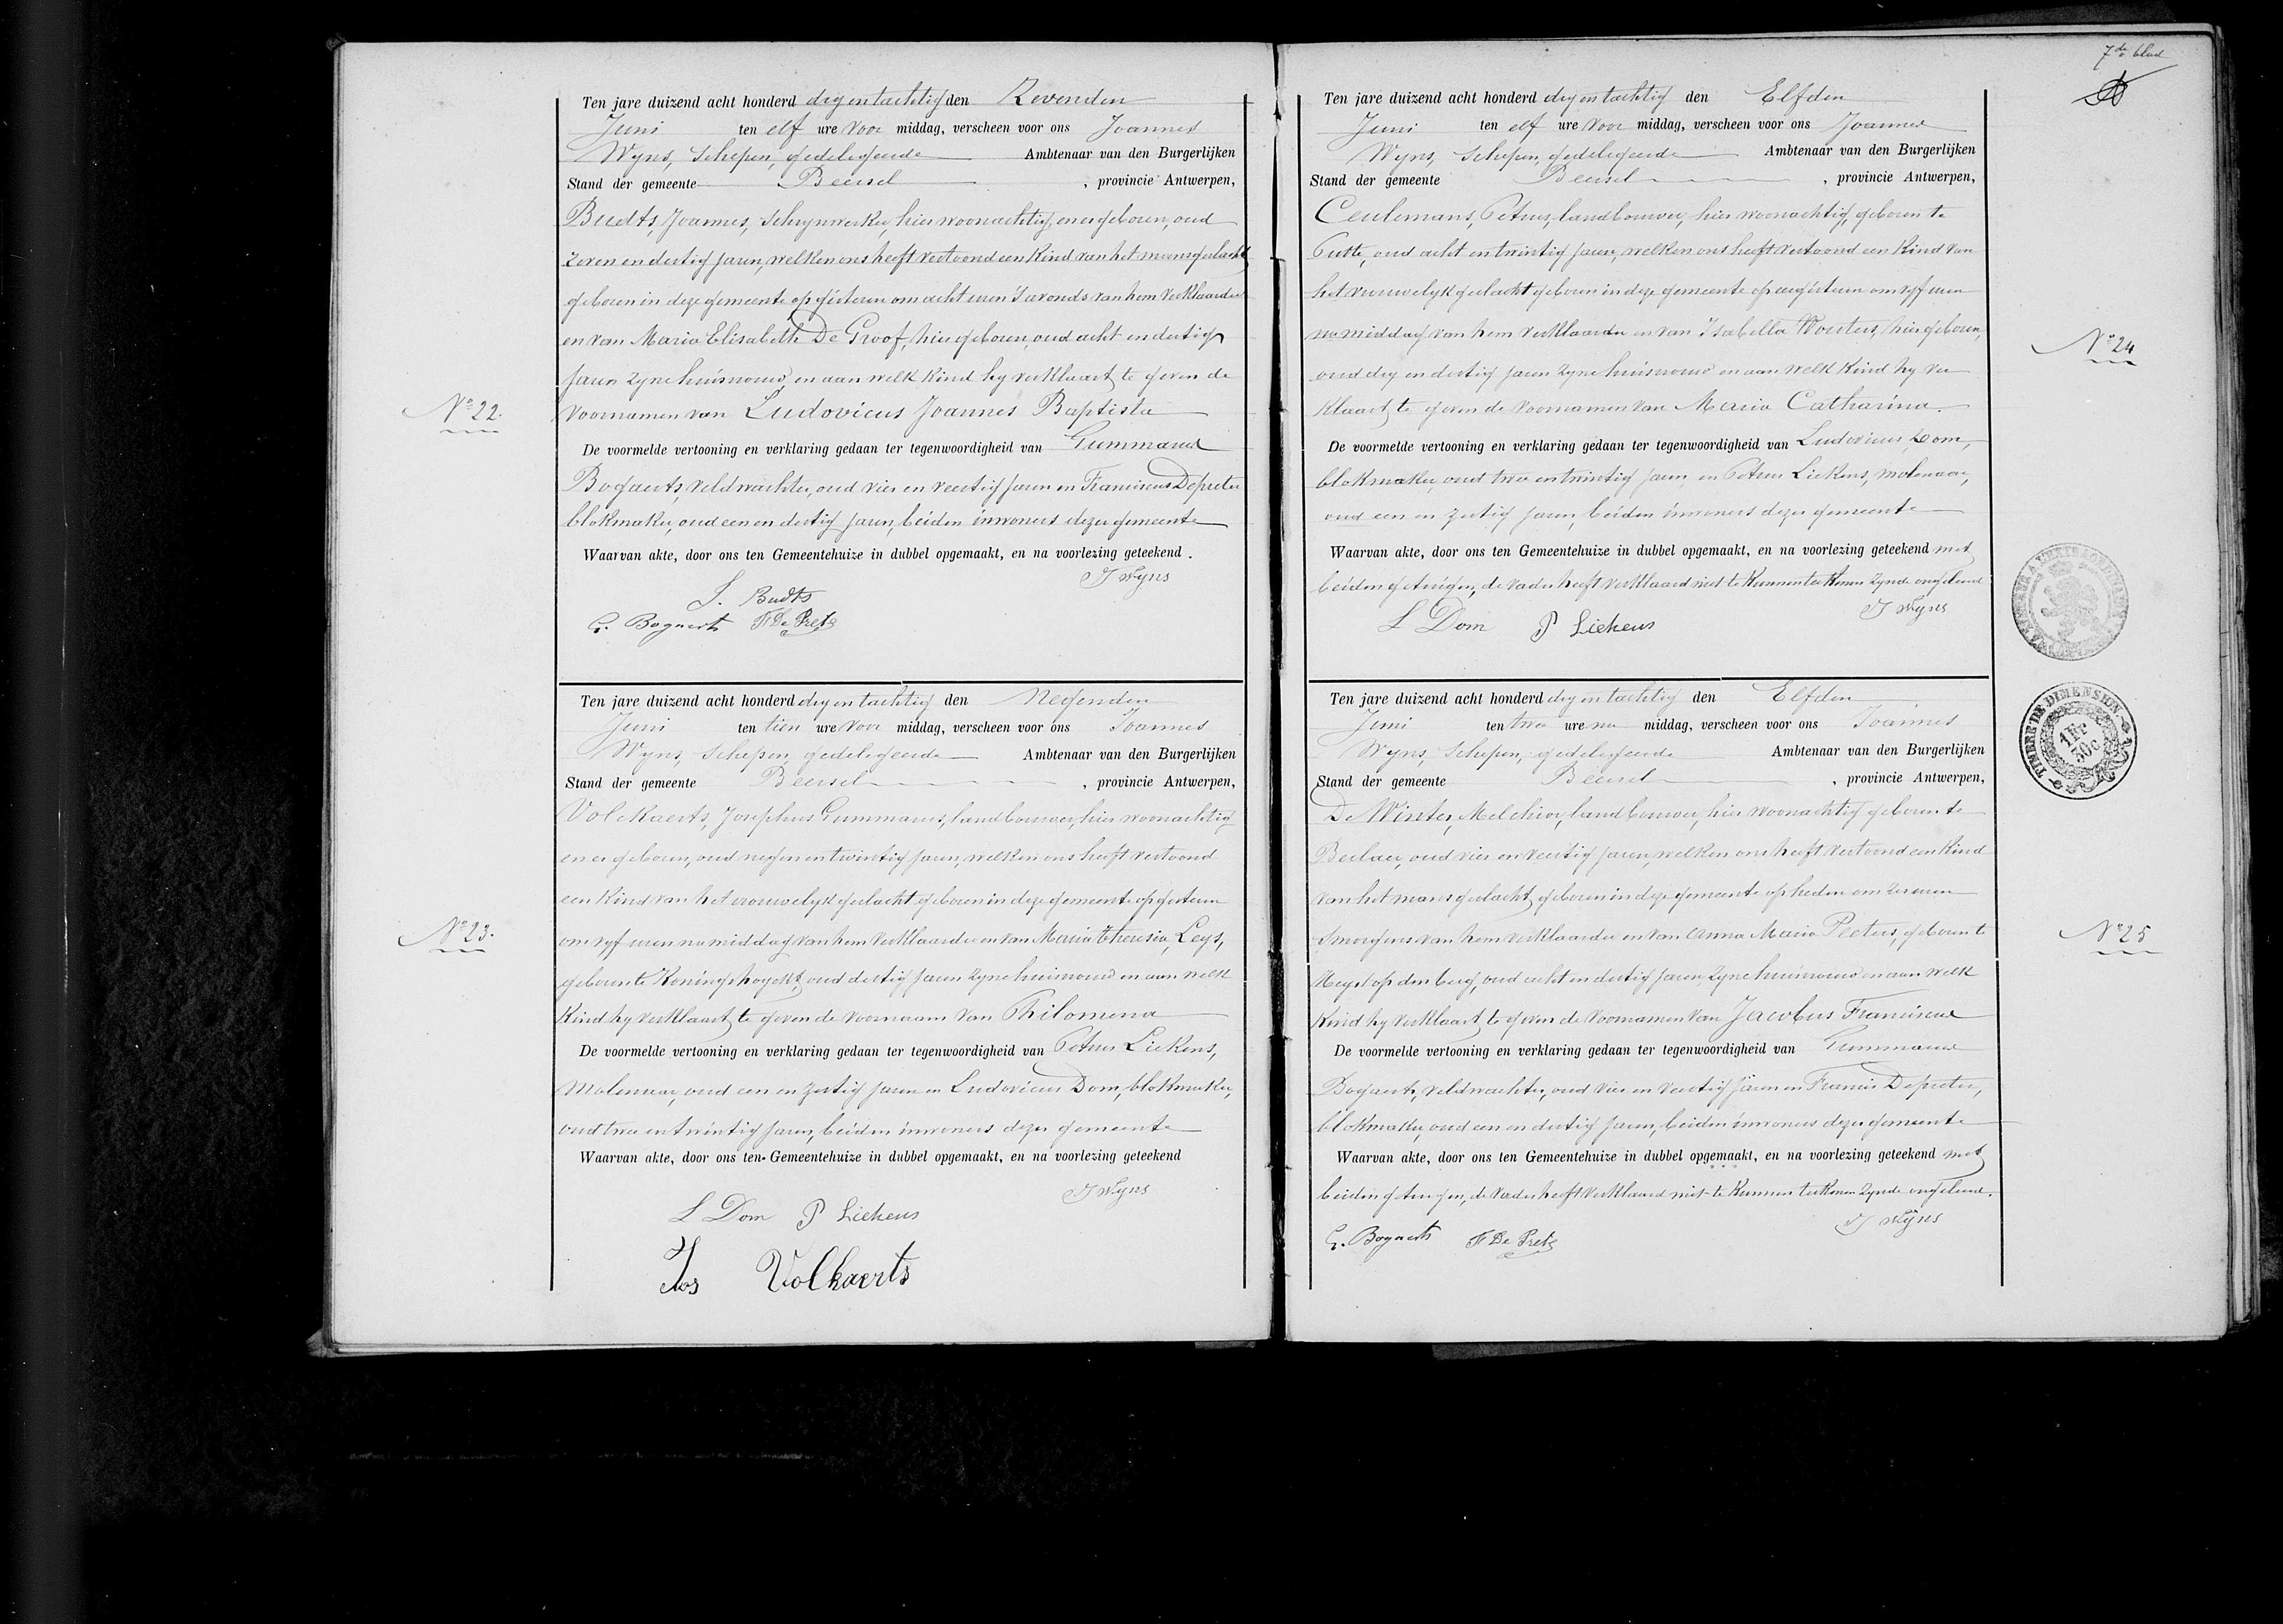 Ten jare duizend acht honderd dry en tachtig den Zevenden
Juni ten elf ure voor middag, verscheen voor ons Joannes
Wyns, Schepen, gedelegeerde Ambtenaar van den Burgerlijken
Stand der gemeente Beersel, provincie Antwerpen,
Budts, Joannes, Schrynwerker, hier woonachtig, en er geboren, oud
zeven en dertig jaren, welken ons heeft vertoond een kind van het mansgeslacht
geboren in deze gemeente op gisteren om acht uren 's avonds van hem verklaarder
en van Maria Elisabeth De Groof, hier geboren, oud acht en dertig
jaren zyne huisvrouw, en aan welk kind hy verklaart te geven de
voornamen van Ludovicus Joannes Baptista
Nº 22.
De voormelde vertooning en verklaring gedaan ter tegenwoordigheid van Gummarus
Bogaerts, veldwachter, oud vier en veertig jaren en Franciscus Depreter
blokmaker, oud een en dertig jaren, beiden inwoners dezer gemeente
Waarvan akte, door ons ten Gemeentehuize in dubbel opgemaakt, en na voorlezing geteekend.
J Wyns
J. Budts
G. Bogaerts F De Preter
Ten jare duizend acht honderd dry en tachtig den Negenden
Juni ten tien ure voor middag, verscheen voor ons Joannes
Wyns, Schepen, gedelegeerde Ambtenaar van den Burgerlijken
Stand der gemeente Beersel, provincie Antwerpen,
Volckaerts, Josephus Gummarus, landbouwer, hier woonachtig
en er geboren, oud negen en twintig jaren, welken ons heeft vertoond
een kind van het vrouwelyk geslacht geboren in deze gemeente op gisteren
om vyf uren namiddag van hem verklaarder en van Maria Theresia Leys,
Nº 23.
geboren te Koningshoyckt, oud dertig jaren zyne huisvrouw en aan welk
kind hy verklaart te geven de voornaam van Philomena
De voormelde vertooning en verklaring gedaan ter tegenwoordigheid van Petrus Liekens,
molenaar, oud een en zestig jaren en Ludovicus Dom, blokmaker,
oud twee en twintig jaren, beiden inwoners dezer gemeente
Waarvan akte, door ons ten Gemeentehuize in dubbel opgemaakt, en na voorlezing geteekend
J Wyns
L Dom P Liekens
Jos Volkaerts
7de blad
Ten jare duizend acht honderd dry en tachtig den Elfden
Juni ten elf ure voor middag, verscheen voor ons Joannes
Wyns, Schepen, gedelegeerde Ambtenaar van den Burgerlijken
Stand der gemeente Beersel, provincie Antwerpen,
Ceulemans, Petrus, landbouwer, hier woonachtig, geboren te
Putte, oud acht en twintig jaren, welken ons heeft vertoond een kind van
het vrouwelyk geslacht geboren in deze gemeente op eergisteren om vyf uren
namiddag van hem verklaarder en van Isabella Wouters, hier geboren,
Nº 24
oud dry en dertig jaren zyne huisvrouw en aan welk kind hy ver
klaart te geven de voornamen van Maria Catharina.
De voormelde vertooning en verklaring gedaan ter tegenwoordigheid van Ludovicus Dom,
blokmaker, oud twee en twintig jaren, en Petrus Liekens, molenaar,
oud een en zestig jaren, beiden inwoners dezer gemeente
Waarvan akte, door ons ten Gemeentehuize in dubbel opgemaakt, en na voorlezing geteekend met
beiden getuigen, de vader heeft verklaard niet te kunnen teekenen zynde ongeleerd
J Wyns
L Dom P Liekens
Ten jare duizend acht honderd dry en tachtig den Elfden
Juni ten twee ure na middag, verscheen voor ons Joannes
Wyns, Schepen, gedelegeerde Ambtenaar van den Burgerlijken
Stand der gemeente Beersel, provincie Antwerpen,
TIMBRE DE DIMENSION.
1Fr
30c
De Winter, Melchior, landbouwer, hier woonachtig geboren te
Berlaer, oud vier en veertig jaren, welken ons heeft vertoond een kind
van het mansgeslacht geboren in deze gemeente op heden om zes uren
smorgens van hem verklaarder en van Anna Maria Peeters, geboren te
Nº 25
Heyst op den berg, oud acht en dertig jaren, zyne huisvrouw en aan welk
kind hy verklaart te geven de voornamen van Jacobus Franciscus
De voormelde vertooning en verklaring gedaan ter tegenwoordigheid van Gummarus
Bogaerts, veldwachter, oud vier en veertig jaren en Francis Depreter,
blokmaker, oud een en dertig jaren, beiden inwoners dezer gemeente
Waarvan akte, door ons ten Gemeentehuize in dubbel opgemaakt, en na voorlezing geteekend met
beiden getuigen, de vader heeft verklaard niet te kunnen teekenen zynde ongeleerd.
J Wyns
G. Bogaerts F De Preter